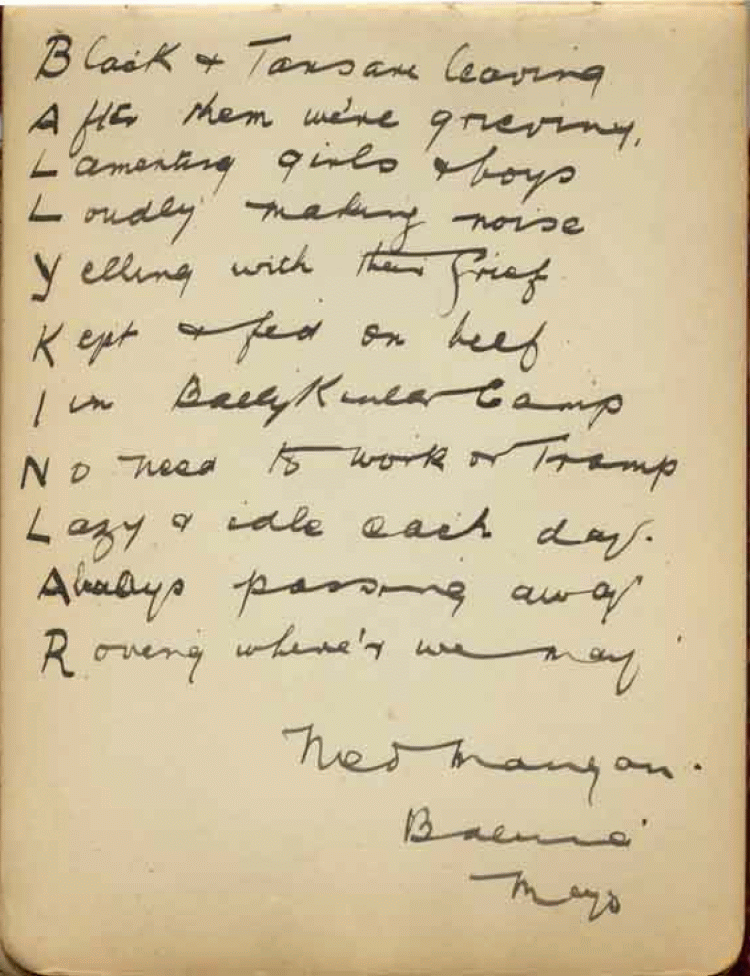 Black & Tans are leaving
After them we're grieving,
Lamenting girls & boys
Loudly making noise
Yelling with their Grief
Kept & fed on beef
I in BallyKinlar Camp
No need to work or Tramp
Lazy & idle each day.
Always passing away
Roving where'r we may
Ned Mangan.
Mayo